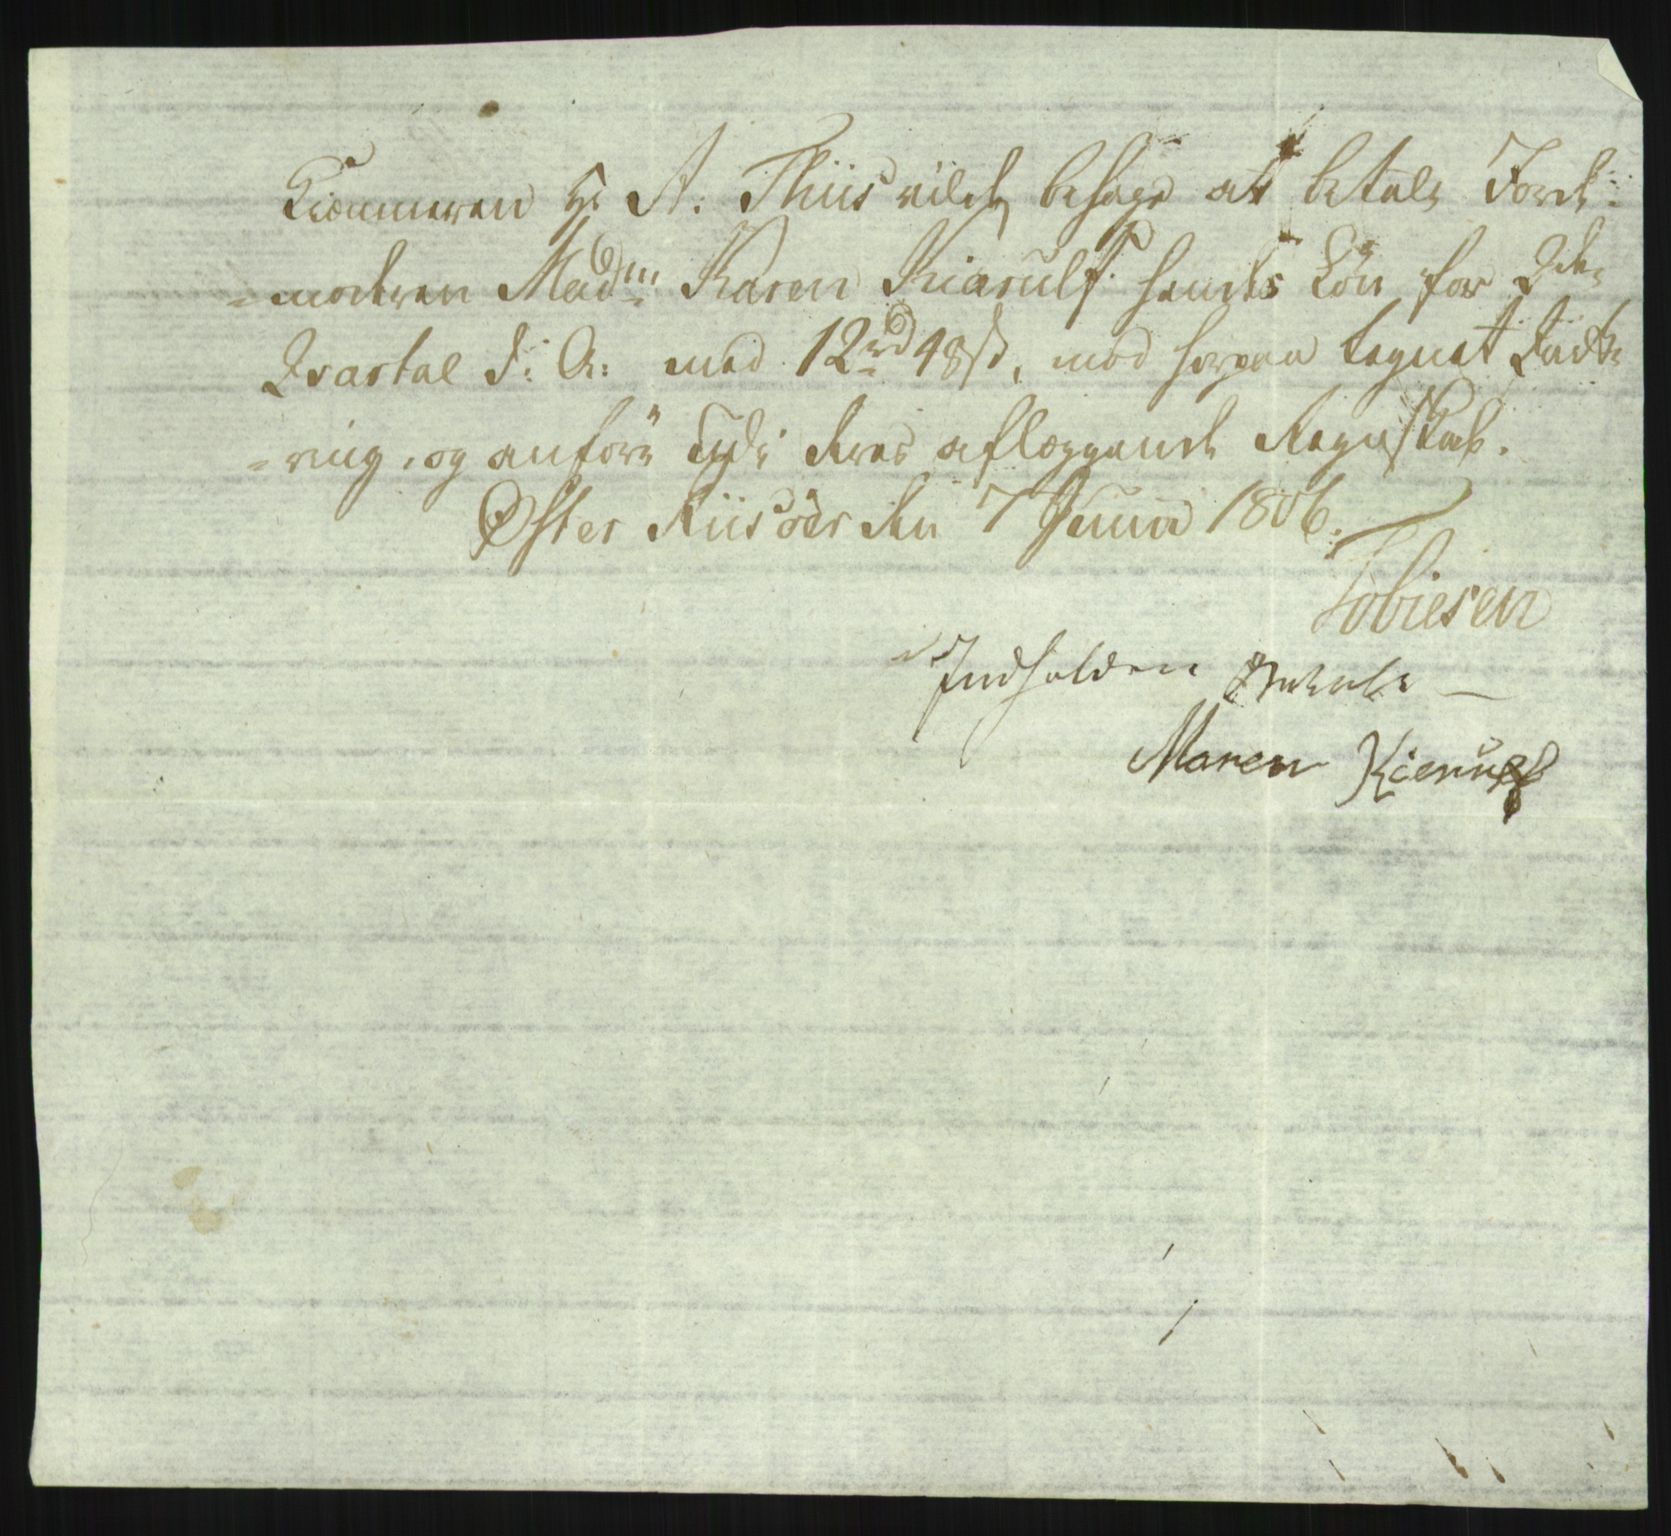 Kiæmneren Hr A. Thiis vilde behage at betale Jorde-
-moderen Madm Karen Kiærulf hendes Lön for 2de
Qvartal d: A: med 12rd 48 s, mod herpaa tegnet Qvitte
-ring, og anföre i deres aflæggende Regnskab.
Øster Riisöer den 7 Junii 1806.
Tobiesen
Indholden Betalt
Maren Kierulf